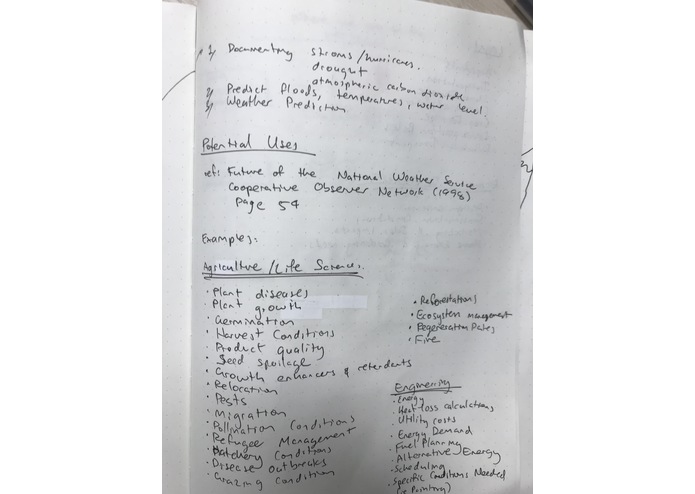 1) Documenting stroms/hurricanes.
drought
atmospheric carbon dioxide
2) Predict floods, temperatures, water level.
3) Weather Prediction
Potential Uses
ref: Future of the National Weather Service
Cooperative Observer Network (1998)
Page 54
Examples:
Agriculture/Life Science.
· Plant diseases
· Plant growth
· Germination
· Harvest Conditions
· Product quality
· Seed spoilage
· Growth enhancers & retardants
· Relocation
· Pests
· Migration
· Pollination Conditions
· Refugee Management
· Hatchery Conditions
· Disease outbreaks
· Grazing Condition
· Reforestations
· Ecosystem management
· Regeneration Rates
· Fire
Engineering
· Energy
· Heat loss calculations
· Utility costs
· Energy Demand
· Fuel Planning
· Alternative Energy
· Scheduling
· Specific Conditions Needed